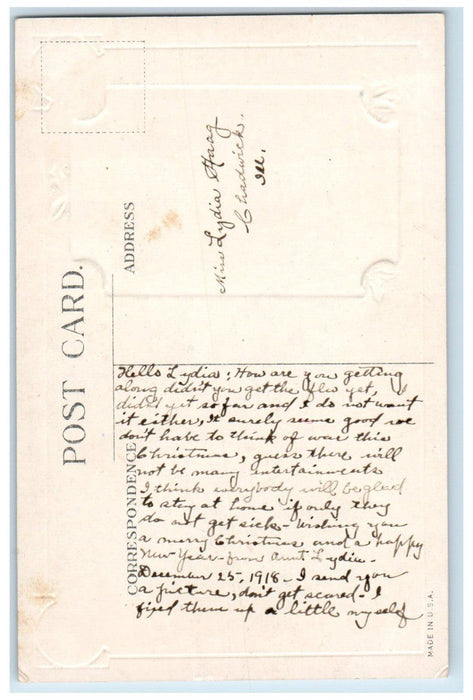 POST CARD.
ADDRESS
Miss Lydia Haag
Chadwick.
Ill.
CORRESPONDENCE
Hello Lydia; How are you getting
along didn't you get the flu yet, I
didn't yet so far and I do not want
it either, It surely seems good we
don't habe to think of war this
Christmas, guess there will
not be many entertainments
I think everybody will be glad
to stay at home if only they
do not get sick - Wishing you
a merry Christmas and a happy
New Year - from Aunt Lydia -
December 25, 1918 - I send you
a picture, don't get scared - I
fixed them up a little myself
MADE IN U.S.A.